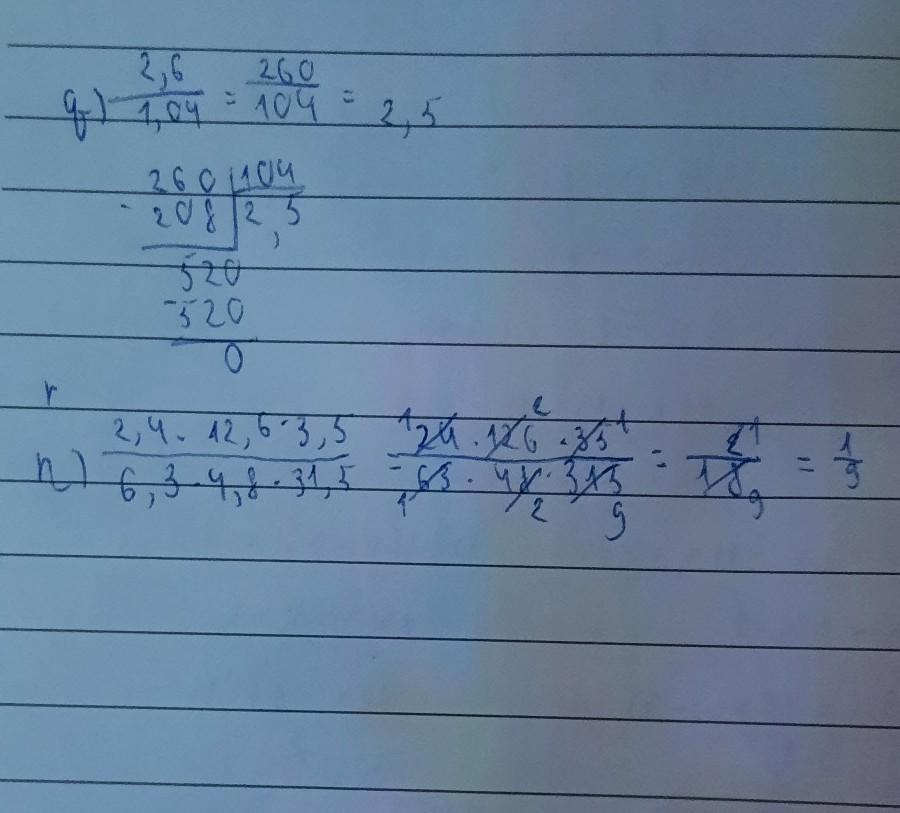 q) 2,6/1,04 = 260/104 = 2,5
260 | 104
- 208 | 2,5
520
- 520
0
r
n) 2,4 · 12,6 · 3,5 / 6,3 · 4,8 · 31,5 = 1 24 · 126 2 · 35 1 / 1 63 · 48 2 · 315 9 = 2 1 / 18 9 = 1/9